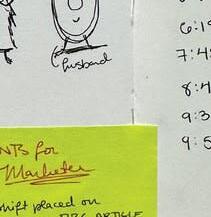 husband
6:1
7:4
8:4
9:3
9:5
NTS for
Marketer
shift placed on
ARTICLE